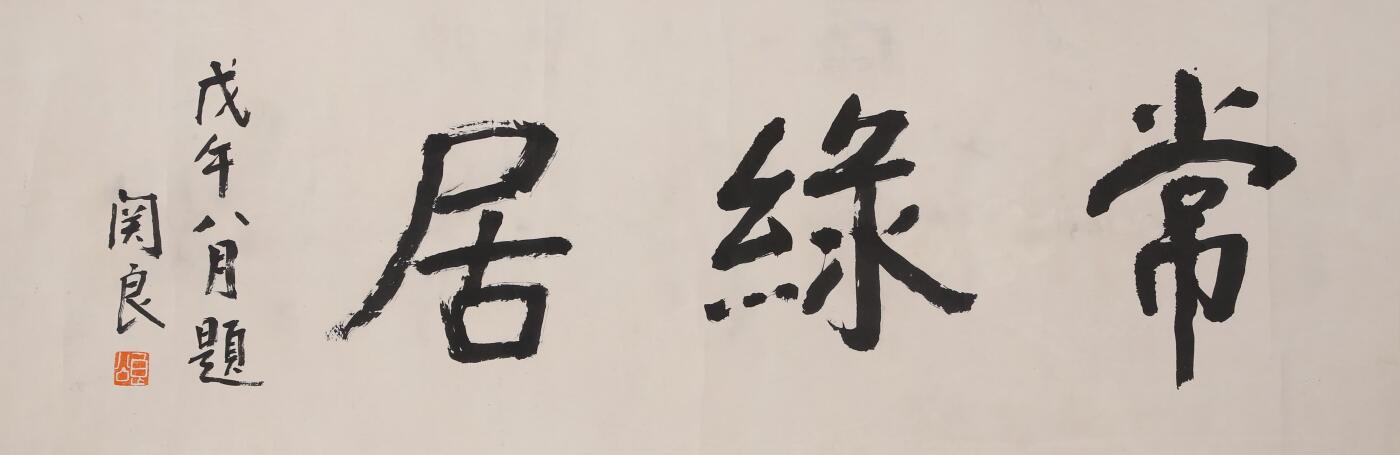 常綠居
戊午八月題
関良